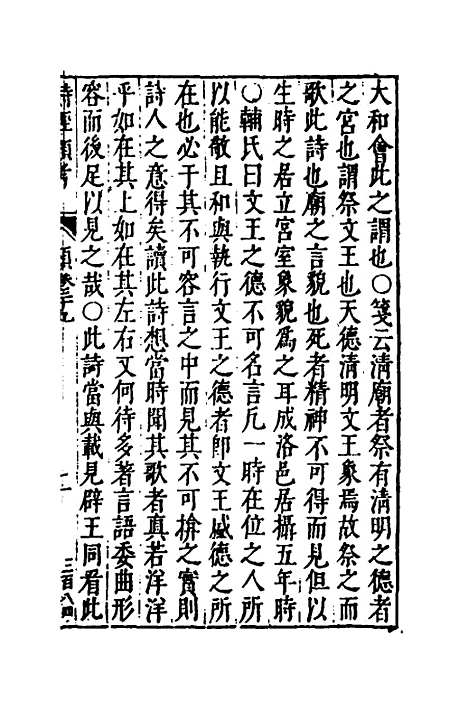 大和會此之謂也〇箋云清廟者祭有清明之德者
之宮也謂祭文王也天德清明文王象焉故祭之而
歌此詩也廟之言貌也死者精神不可得而見但以
生時之居立宮室象貌爲之耳成洛邑居攝五年時
〇輔氏曰文王之德不可名言凡一時在位之人所
以能敬且和與執行文王之德者卽文王盛德之所
在也必于其不可容言之中而見其不可揜之實則
詩人之意得矣讀此詩想當時聞其歌者真若洋洋
乎如在其上如在其左右又何待多著言語委曲形
容而後足以見之哉〇此詩當與載見辟王同看此
詩經類考 頌卷二十九 三百八四